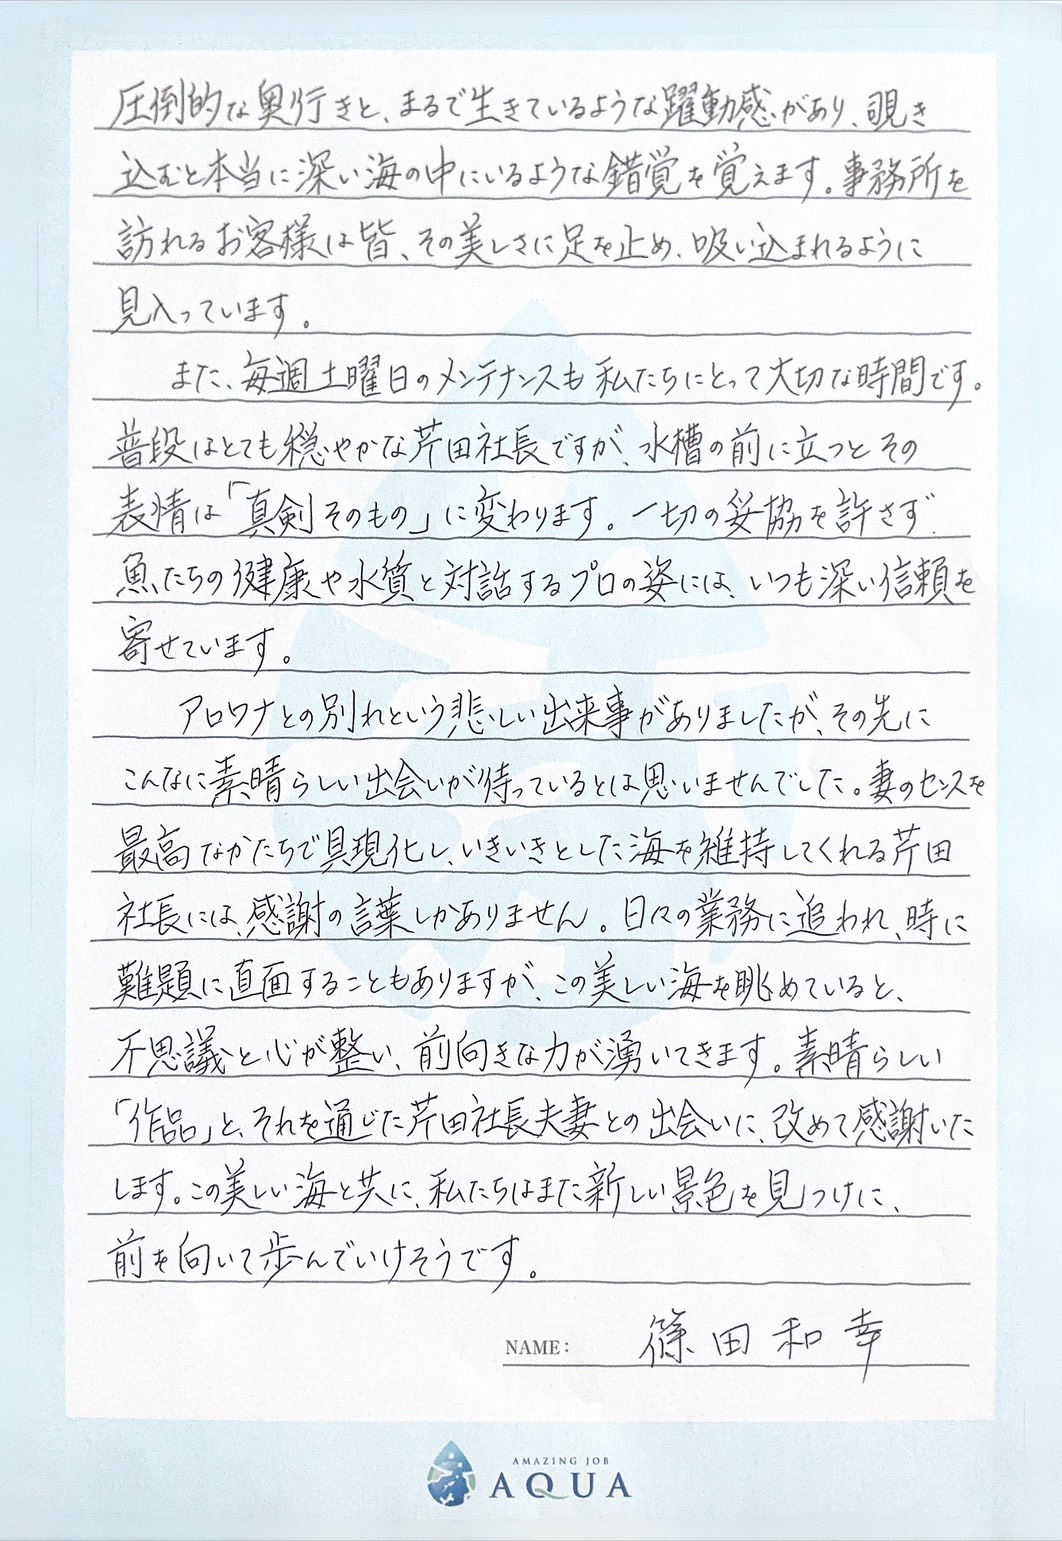 圧倒的な奥行きと、まるで生きているような躍動感があり、覗き
込むと本当に深い海の中にいるような錯覚を覚えます。事務所を
訪れるお客様は皆、その美しさに足を止め、吸い込まれるように
見入っています。
また、毎週土曜日のメンテナンスも私たちにとって大切な時間です。
普段はとても穏やかな芹田社長ですが、水槽の前に立つとその
表情は「真剣そのもの」に変わります。一切の妥協を許さず
魚たちの健康や水質と対話するプロの姿には、いつも深い信頼を
寄せています。
アロワナとの別れという悲しい出来事がありましたが、その先に
こんなに素晴らしい出会いが待っているとは思いませんでした。妻のセンスを
最高なかたちで具現化し、いきいきとした海を維持してくれる芹田
社長には、感謝の言葉しかありません。日々の業務に追われ、時に
難題に直面することもありますが、この美しい海を眺めていると、
不思議と心が整い、前向きな力が湧いてきます。素晴らしい
「作品」と、それを通じた芹田社長夫妻との出会いに、改めて感謝いた
します。この美しい海と共に、私たちはまた新しい景色を見つけに、
前を向いて歩んでいけそうです。
NAME: 篠田和幸
AMAZING JOB
AQUA